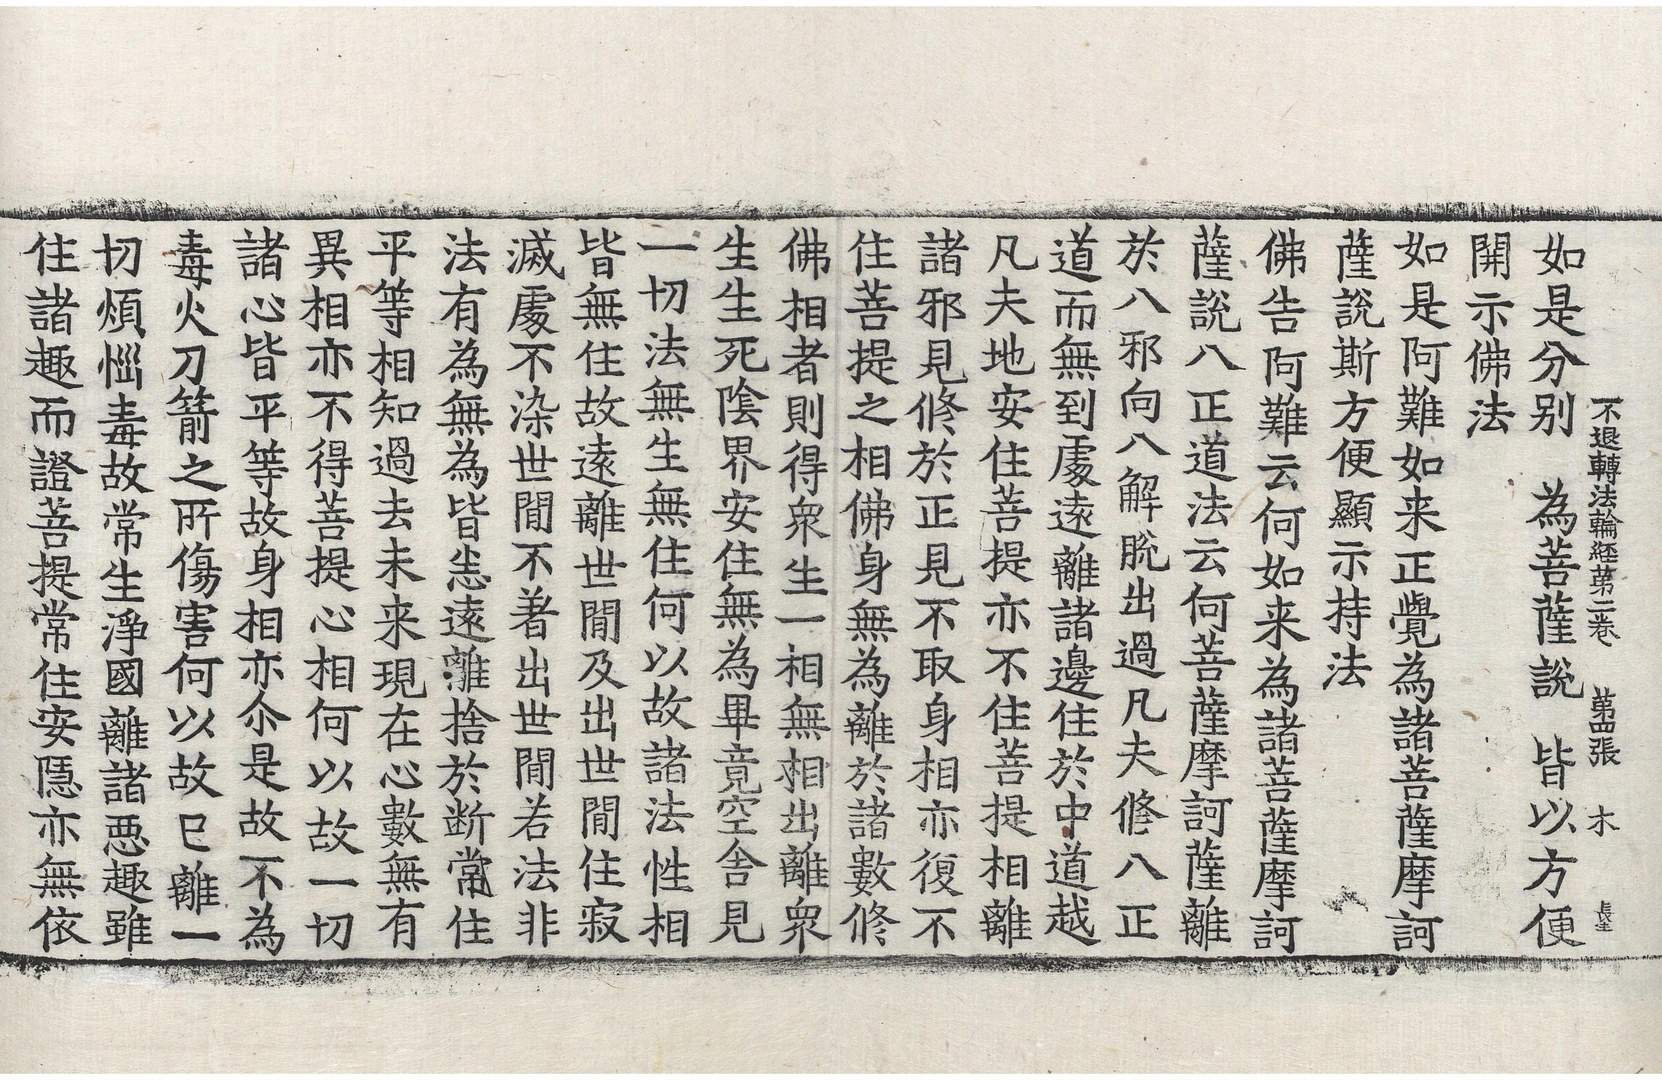 不退轉法輪経第二巻　第四張　木
如是分别　為菩薩說　皆以方便
開示佛法
如是阿難如来正覺為諸菩薩摩訶
薩說斯方便顯示持法
佛告阿難云何如来為諸菩薩摩訶
薩說八正道法云何菩薩摩訶薩離
於八邪向八解脫出過凡夫修八正
道而無到處遠離諸邊住於中道越
凡夫地安住菩提亦不住菩提相離
諸邪見修於正見不取身相亦復不
住菩提之相佛身無為離於諸數修
佛相者則得衆生一相無相出離衆
生生死陰界安住無為畢竟空舍見
一切法無生無住何以故諸法性相
皆無住故遠離世間及出世間住寂
滅處不染世間不著出世間若法非
法有為無為皆悉遠離捨於断常住
平等相知過去未来現在心數無有
異相亦不得菩提心相何以故一切
諸心皆平等故身相亦尒是故不為
毒火刀箭之所傷害何以故已離一
切煩惱毒故常生淨國離諸惡趣雖
住諸趣而證菩提常住安隱亦無依